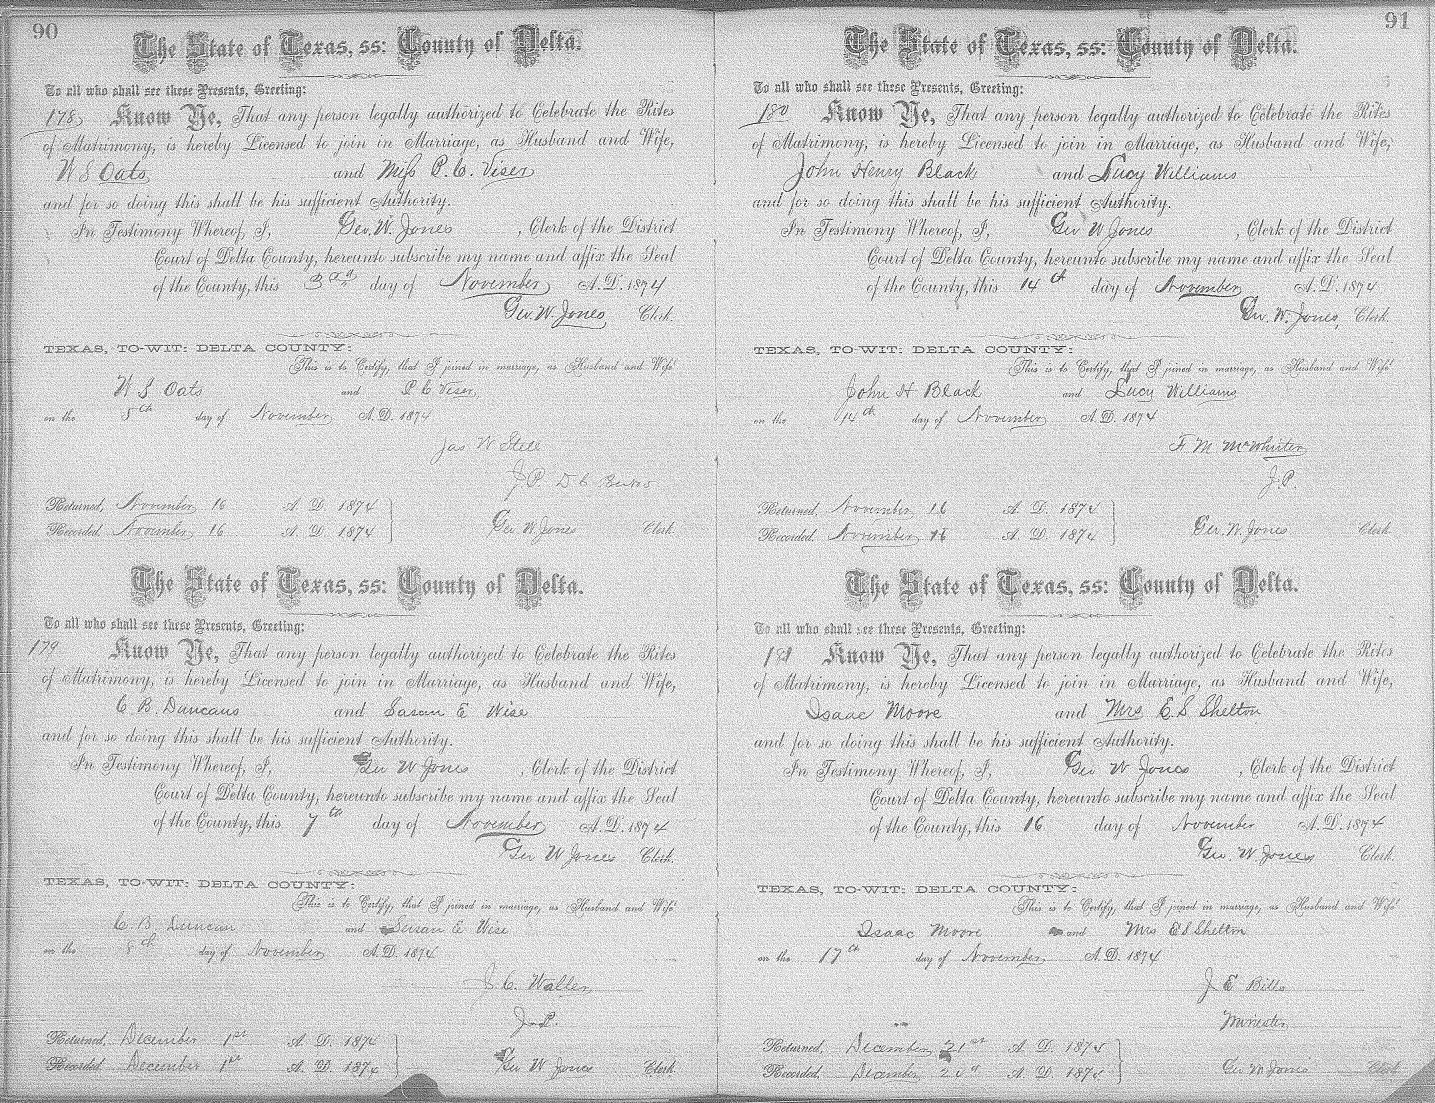 90
The State of Texas, ss: County of Delta.
To all who shall see these Presents, Greeting:
178 Know Ye, That any person legally authorized to Celebrate the Rites
of Matrimony, is hereby Licensed to join in Marriage, as Husband and Wife,
W S Oats and Miss P. C. Viser
and for so doing this shall be his sufficient Authority.
In Testimony Whereof, I, Geo. W. Jones, Clerk of the District
Court of Delta County, hereunto subscribe my name and affix the Seal
of the County, this 3rd day of November A.D. 1874
Geo. W. Jones, Clerk.
TEXAS, TO-WIT: DELTA COUNTY:
This is to Certify, that I joined in marriage, as Husband and Wife
W S Oats and P C Viser,
on the 8th day of November A.D. 1874
Jas W Stell
J.P. D C
Returned, November 16 A. D. 1874
Recorded, November 16 A. D. 1874 Geo W Jones Clerk
The State of Texas, ss: County of Delta.
To all who shall see these Presents, Greeting:
179 Know Ye, That any person legally authorized to Celebrate the Rites
of Matrimony, is hereby Licensed to join in Marriage, as Husband and Wife,
C. B. Duncans and Susan E Wise
and for so doing this shall be his sufficient Authority.
In Testimony Whereof, I, Geo W Jones, Clerk of the District
Court of Delta County, hereunto subscribe my name and affix the Seal
of the County, this 7th day of November A.D. 1874
Geo W Jones Clerk.
TEXAS, TO-WIT: DELTA COUNTY:
This is to Certify, that I joined in marriage, as Husband and Wife
C B Duncan and Susan E Wise
on the 8th day of November A.D. 1874
J. C. Waller
J.P.
Returned, December 1st A. D. 1874
Recorded December 1st A. D. 1874 Geo W Jones Clerk
91
The State of Texas, ss: County of Delta.
To all who shall see these Presents, Greeting:
180 Know Ye, That any person legally authorized to Celebrate the Rites
of Matrimony, is hereby Licensed to join in Marriage, as Husband and Wife,
John Henry Black and Lucy Williams
and for so doing this shall be his sufficient Authority.
In Testimony Whereof, I, Geo W Jones, Clerk of the District
Court of Delta County, hereunto subscribe my name and affix the Seal
of the County, this 14th day of November A.D. 1874
Geo. W. Jones, Clerk.
TEXAS, TO-WIT: DELTA COUNTY:
This is to Certify, that I joined in marriage, as Husband and Wife
John H Black and Lucy Williams
on the 14th day of November A.D. 1874
F. M. McWhirter
J.P.
Returned, November 16 A. D. 1874
Recorded, November 16 A. D. 1874 Geo. W. Jones Clerk
The State of Texas, ss: County of Delta.
To all who shall see these Presents, Greeting:
181 Know Ye, That any person legally authorized to Celebrate the Rites
of Matrimony, is hereby Licensed to join in Marriage, as Husband and Wife,
Isaac Moore and Mrs E. S Shelton
and for so doing this shall be his sufficient Authority.
In Testimony Whereof, I, Geo W Jones, Clerk of the District
Court of Delta County, hereunto subscribe my name and affix the Seal
of the County, this 16 day of November A.D. 1874
Geo. W. Jones Clerk.
TEXAS, TO-WIT: DELTA COUNTY:
This is to Certify, that I joined in marriage, as Husband and Wife
Isaac Moore and Mrs E S Shelton
on the 17th day of November A.D. 1874
J E Bills
Minister
Returned, December 21st A. D. 1874
Recorded, December A. D. 1874 Geo W Jones Clerk